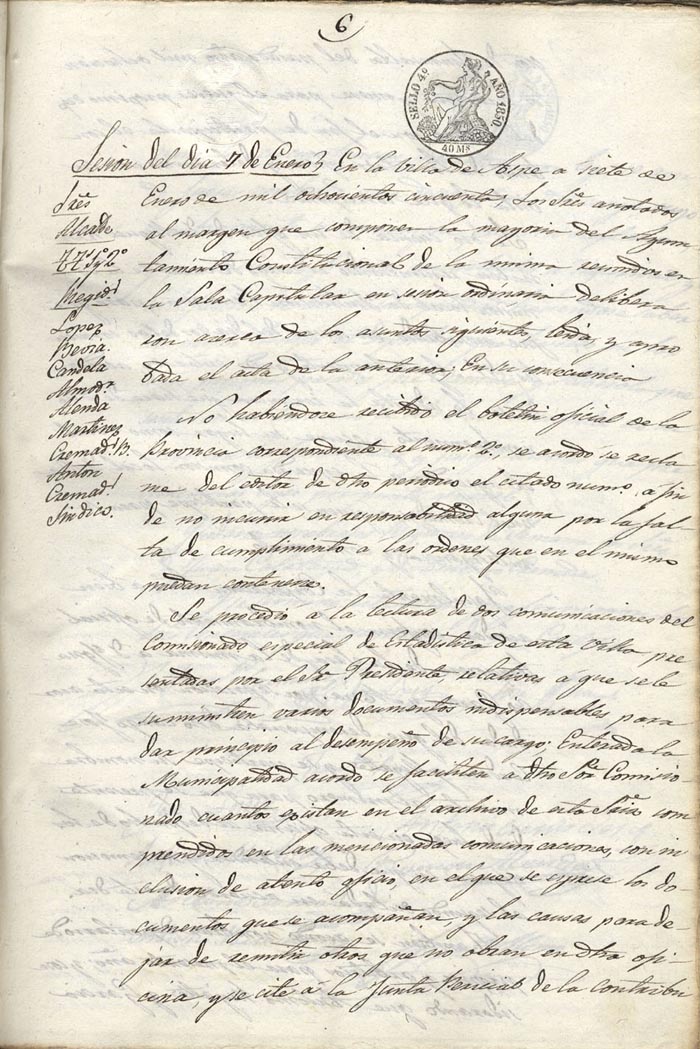 6
SELLO 4º AÑO 1850.
40 Ms
Sesion del dia 7 de Enero} En la Villa de Aspe a siete de
Enero de mil ochocientos cincuenta; Los Sres anotados
al margen que componen la mayoria del Ayun
tamiento Constitucional de la misma reunidos en
la Sala Capitular en sesion ordinaria delibera
ron acerca de los asuntos siguientes, leida, y apro
bada el acta de la anterior; En su consecuencia
Sres
Alcalde
TTes 1º y 2º
Regid.s
Lopez
Bevia.
Candela
Almod.r
Alenda
Martinez
Cremad.s B.
Anton
Cremad.s
Sindico.
No habiendose recibido el boletin oficial de la
Provincia correspondiente al num.º 2º, se acordó se recla
me del editor de dho periodico el citado num.º a fin
de no incurrir en responsabilidad alguna por la fal-
ta de cumplimiento á las ordenes que en el mismo
puedan contenerse.
Se procedió á la lectura de dos comunicaciones del
Comisionado especial de Estadistica de esta Villa pre
sentadas por el Sr. Presidente, relativas á que se le
suministren varios documentos indispensables para
dar principio al desempeño de su cargo; Enterada la
Municipalidad acordó se faciliten a dho Sor Comisio
nado cuantos existan en el archivo de esta Sria com
prendidos en las mencionadas comunicaciones, con in
clusion de atento oficio, en el que se esprese los do-
cumentos que se acompañan, y las causas para de-
jar de remitir otros que no obran en dha ofi-
cina, y se cite a la Junta Pericial de la contribu